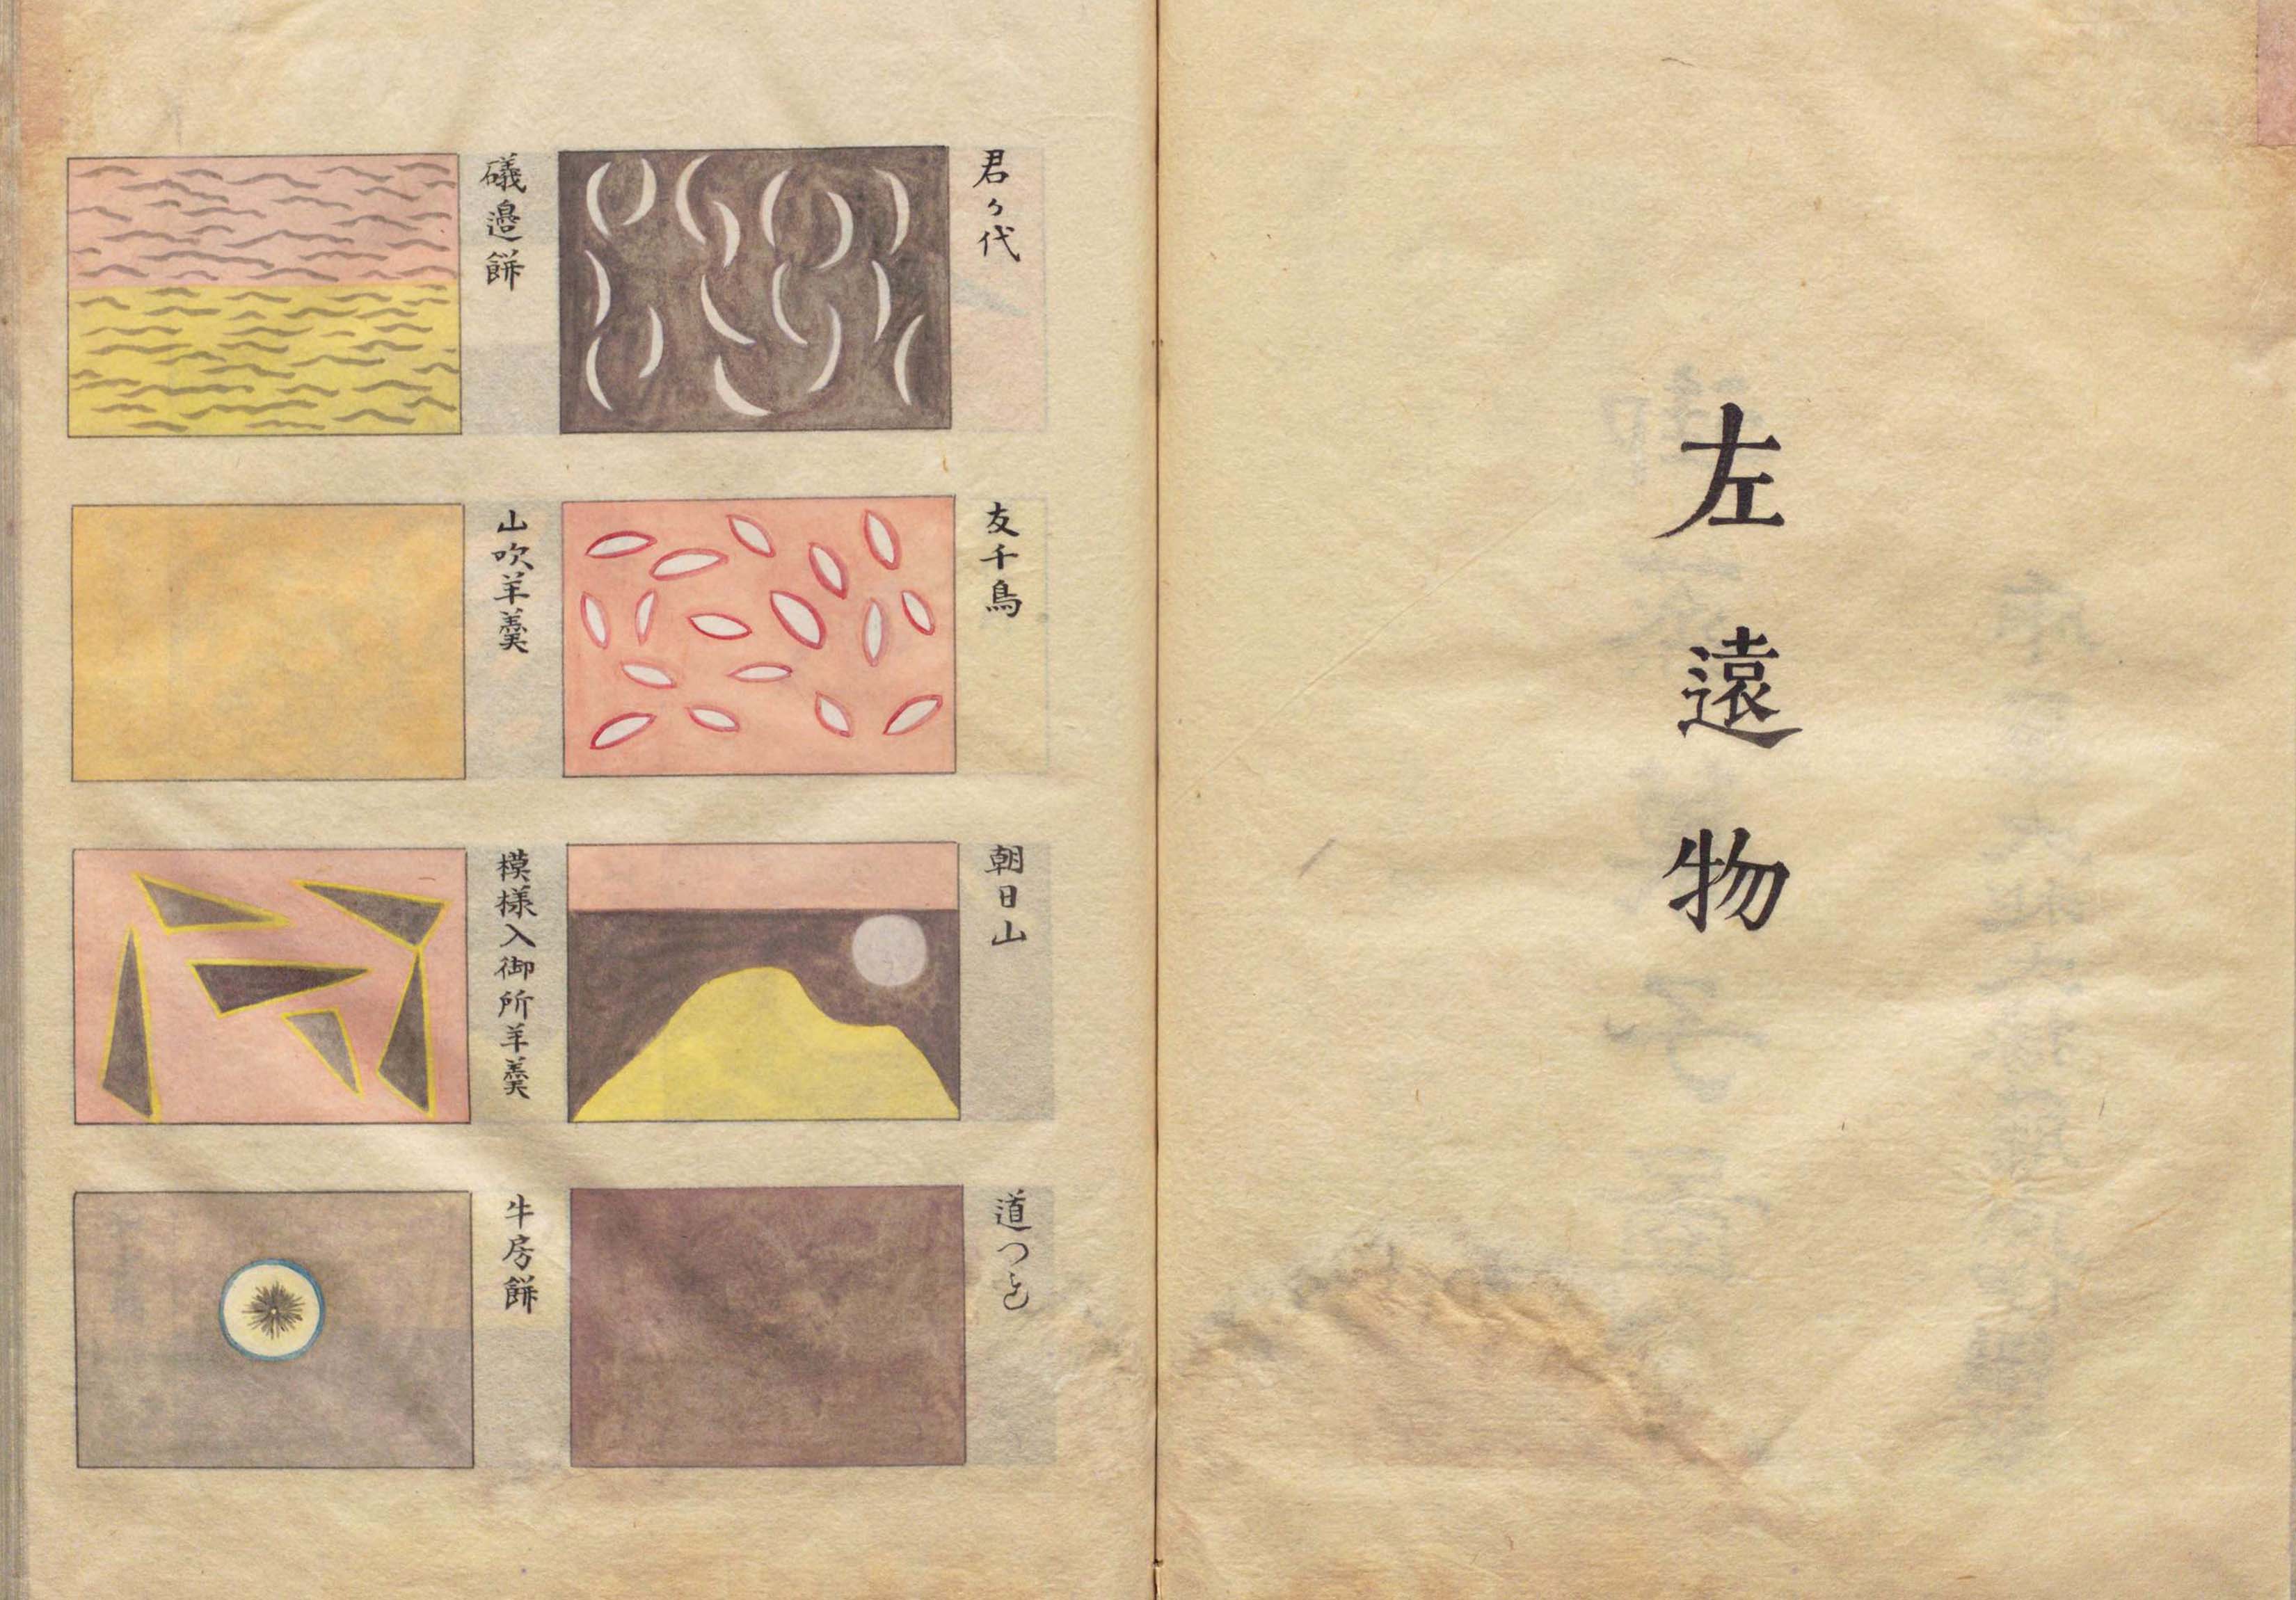 左遠物
君ヶ代
友千鳥
朝日山
道つと
礒邉餅
山吹羊羹
模様入御所羊羹
牛房餅